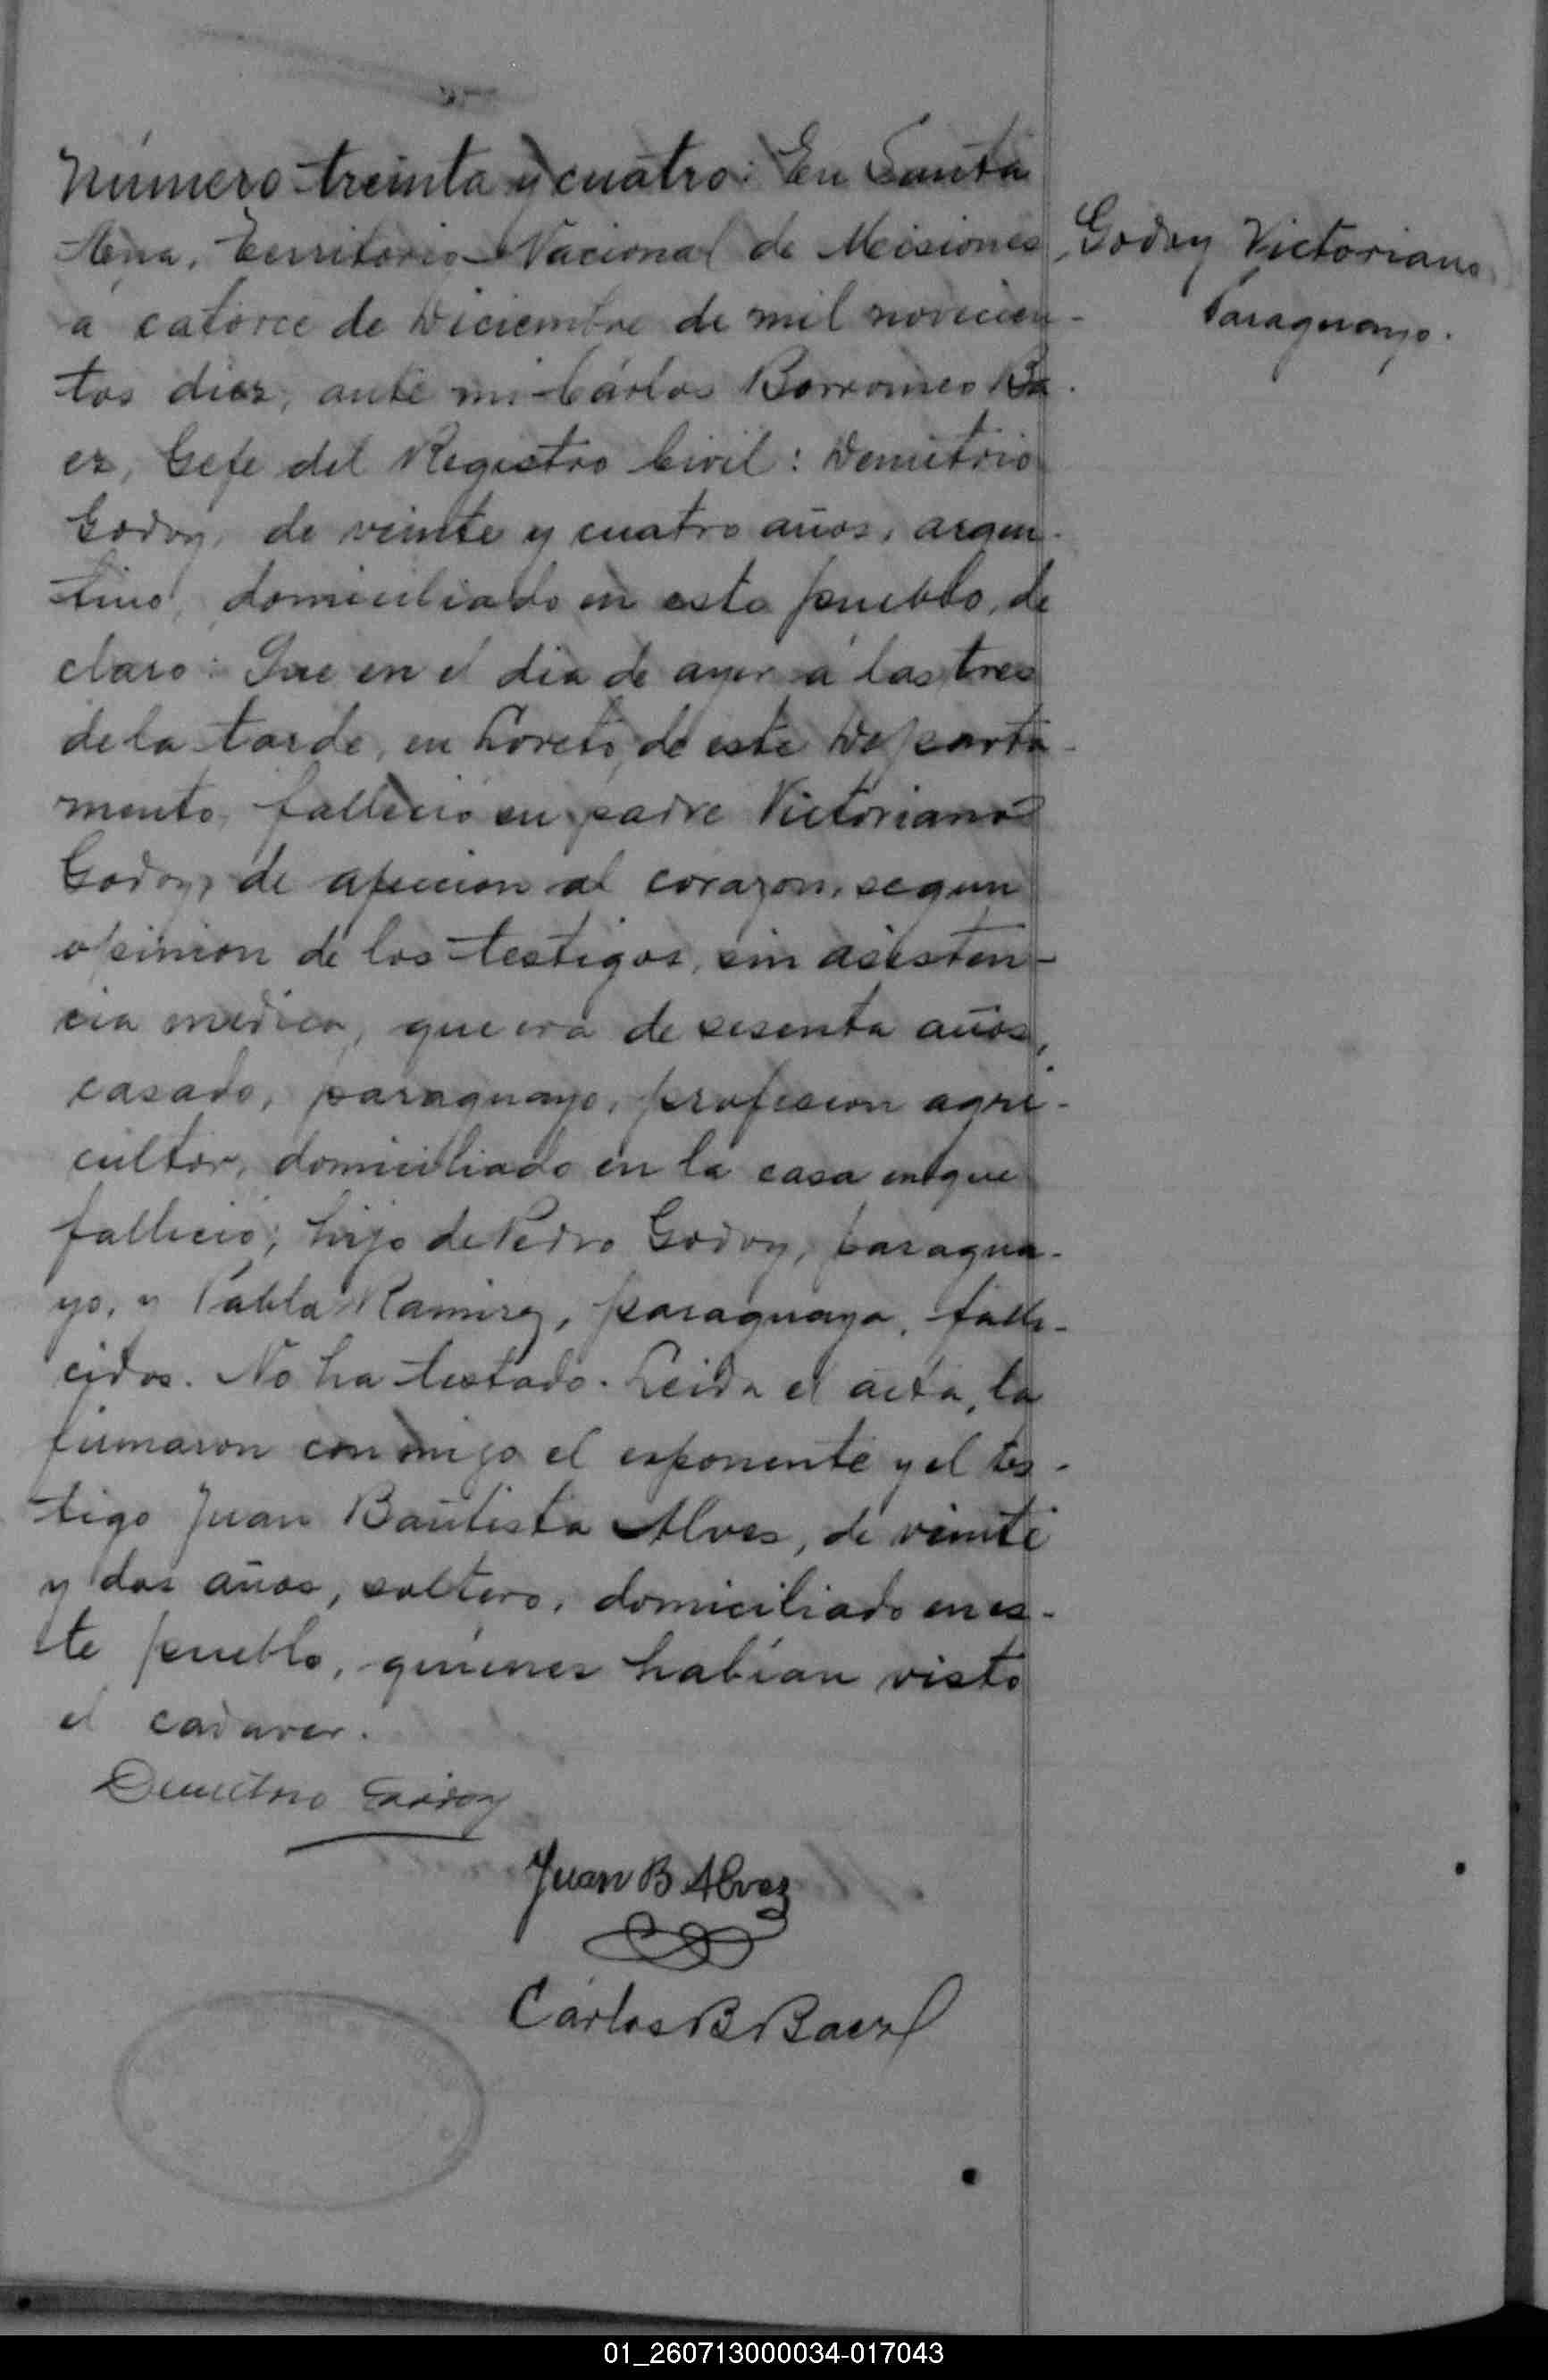 Número treinta y cuatro: En Santa
Ana, Territorio Nacional de Misiones,
á catorce de Diciembre de mil novecien-
tos diez, ante mi Cárlos Borromeo Ba-
ez, Gefe del Registro Civil: Demetrio
Godoy, de veinte y cuatro años, argen-
tino, domiciliado en este pueblo, de
claro: Que en el dia de ayer á las tres
de la tarde, en Loreto, de este Departa-
mento, falleció su padre Victoriano
Godoy, de afeccion al corazon, segun
opinion de los testigos, sin asisten-
cia medica, que era de sesenta años,
casado, paraguayo, profesion agri-
cultor, domiciliado en la casa en que
falleció; hijo de Pedro Godoy, paragua-
yo, y Pabla Ramirez, paraguaya, falle-
cidos. No ha testado. Leida el acta, la
firmaron conmigo el esponente y el tes-
tigo Juan Bautista Alves, de veinte
y dos años, soltero, domiciliado en es-
te pueblo, quienes habían visto
el cadaver.
Demetrio Godoy
Juan B Alvez
Cárlos B Baez
Godoy Victoriano
Paraguayo.
01_260713000034-017043